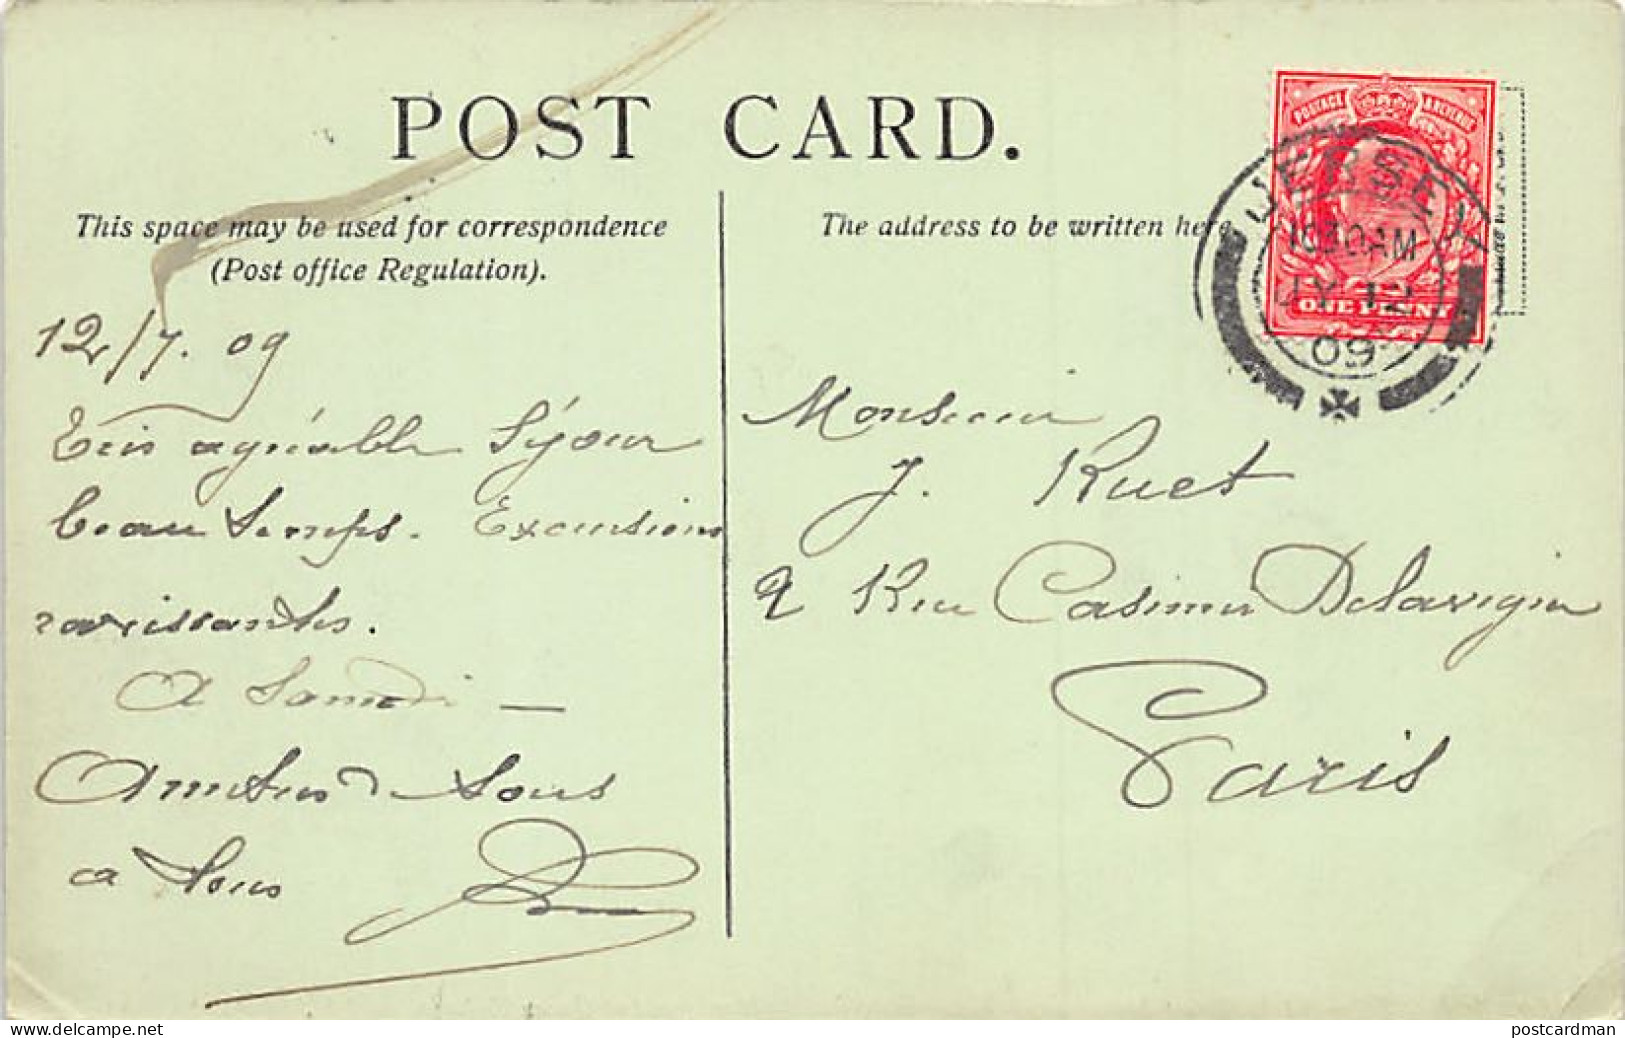 POST CARD.
This space may be used for correspondence
(Post office Regulation).
The address to be written here
POSTAGE & REVENUE
ONE PENNY
JERSEY
10.30AM
JY 12
09
12/7. 09
Très agréable Séjour
beau temps. Excursions
ravissantes.
A Samedi —
Amitiés de tous
a tous
Monsieur
J. Ruet
2 Rue Casimir Delavigne
Paris
www.delcampe.net
postcardman